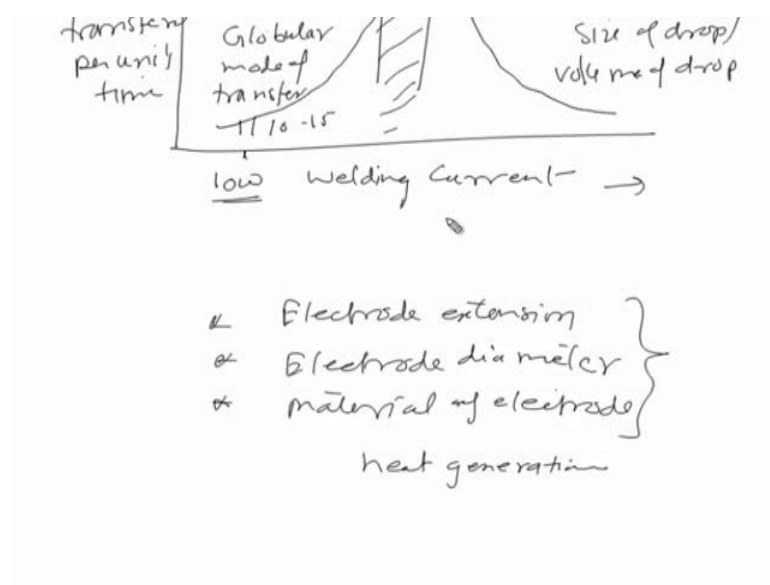 transfer
per unit
time
Globular
mode of
transfer
10-15
Size of drop/
volume of drop
low welding Current →
* Electrode extension
* Electrode diameter
* material of electrode
heat generation